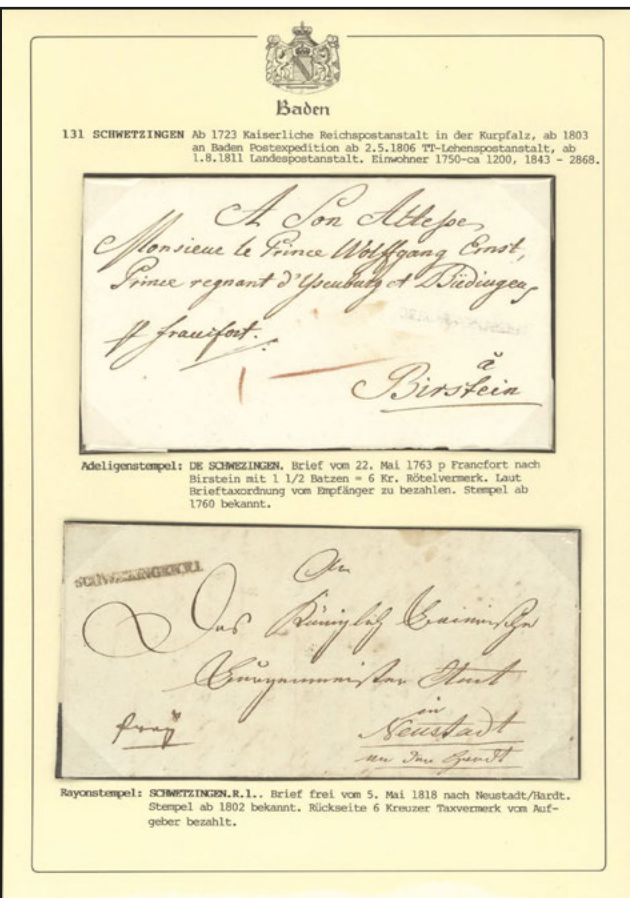 Baden
131 SCHWETZINGEN Ab 1723 Kaiserliche Reichspostanstalt in der Kurpfalz, ab 1803
an Baden Postexpedition ab 2.5.1806 TT-Lehenspostanstalt, ab
1.8.1811 Landespostanstalt. Einwohner 1750-ca 1200, 1843 - 2868.
A Son Altesse,
Monsieur le Prince Wolffgang Ernst,
Prince regnant d'Ysenburg et Büdingen,
p francfort.
à
Birstein
Adeligenstempel: DE SCHWEZINGEN. Brief vom 22. Mai 1763 p Francfort nach
Birstein mit 1 1/2 Batzen = 6 Kr. Rötelvermerk. Laut
Brieftaxordnung vom Empfänger zu bezahlen. Stempel ab
1760 bekannt.
SCHWEZINGEN.R.1.
An
Das Königlich Bairische
Burgermeister Amt
in
frey
Neustadt
an der Hardt
Rayonstempel: SCHWETZINGEN.R.1.. Brief frei vom 5. Mai 1818 nach Neustadt/Hardt.
Stempel ab 1802 bekannt. Rückseite 6 Kreuzer Taxvermerk vom Auf-
geber bezahlt.